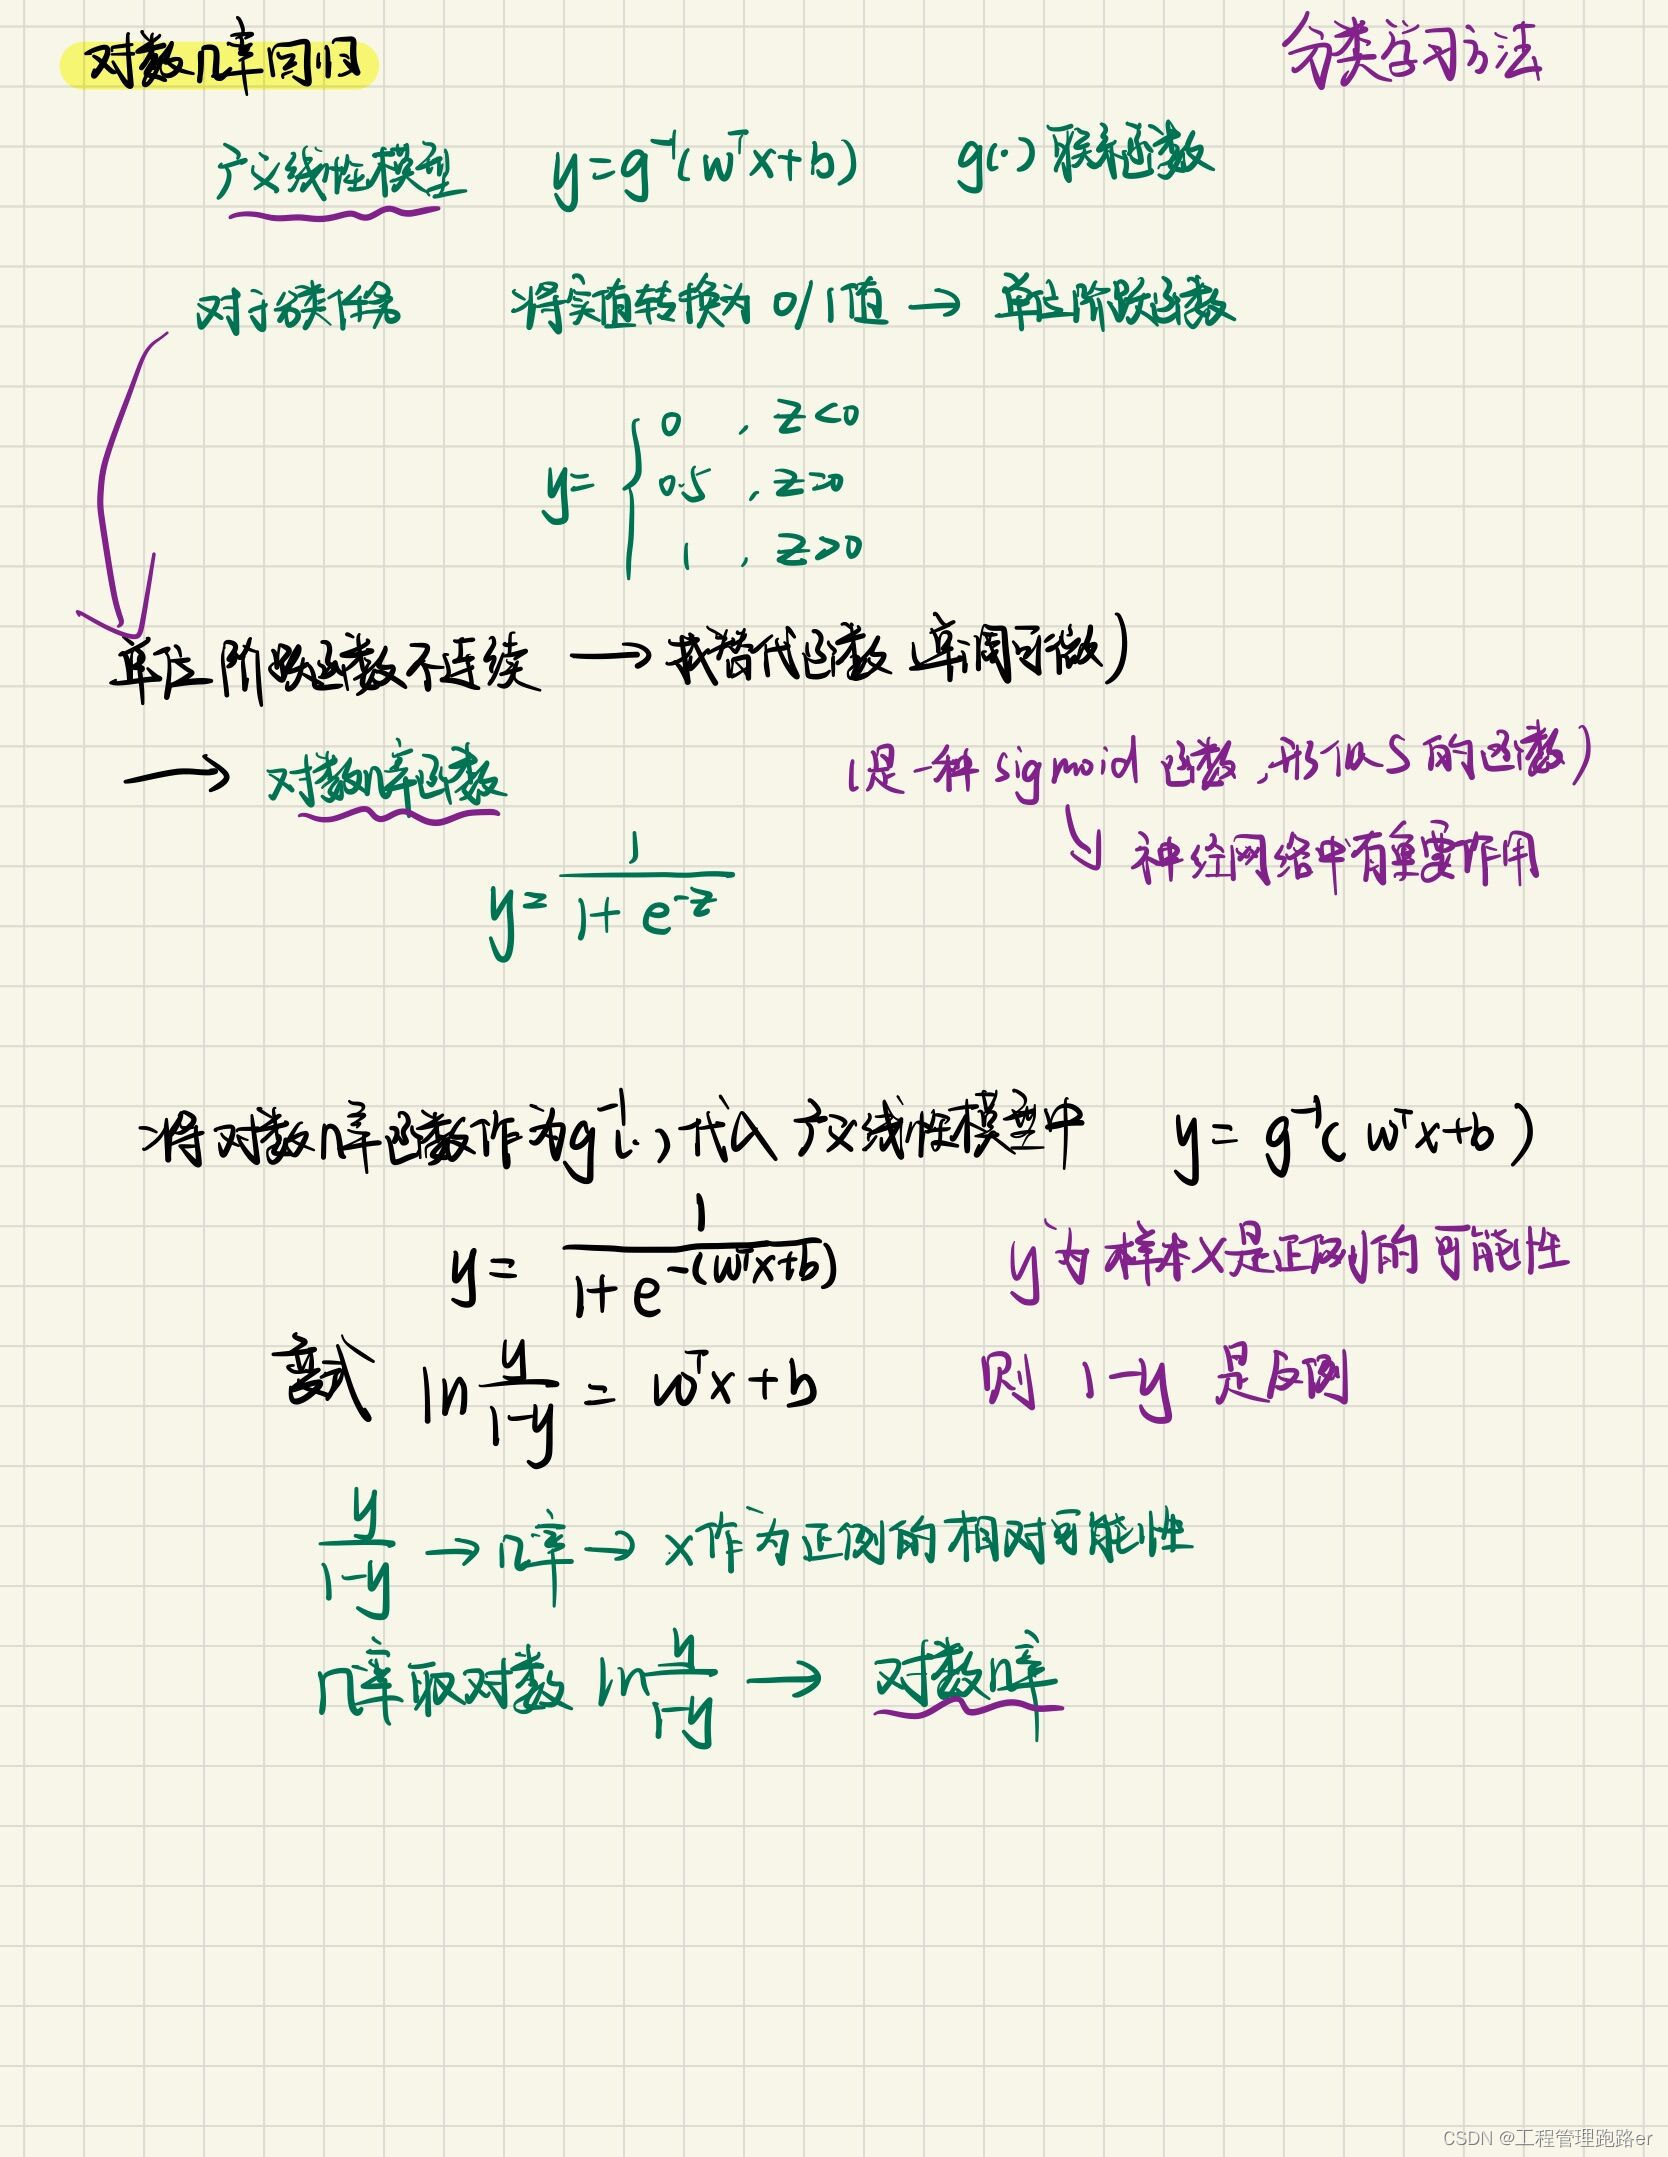 对数几率回归 分类学习方法
广义线性模型 y=g⁻¹(wᵀx+b) g(·) 联系函数
对于分类任务 将实值转换为 0/1值 → 单位阶跃函数
y= { 0 , z<0
0.5 , z=0
1 , z>0
单位阶跃函数不连续 → 找替代函数 (单调可微)
→ 对数几率函数 (是一种 sigmoid 函数,形似S的函数)
↘ 神经网络中有重要作用
y= 1/(1+e^(-z))
将对数几率函数作为g⁻¹(·)代入广义线性模型中 y=g⁻¹(wᵀx+b)
y= 1/(1+e^(-(wᵀx+b))) y为样本x是正例的可能性
变式 ln y/(1-y) = wᵀx+b 则 1-y 是反例
y/(1-y) → 几率 → x作为正例的相对可能性
几率取对数 ln y/(1-y) → 对数几率
CSDN @工程管理跑路er